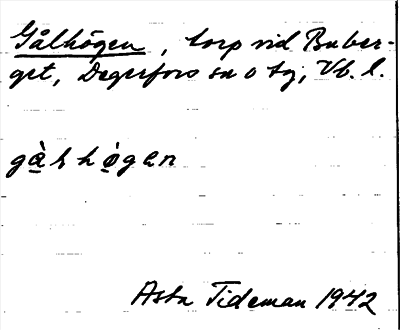 Gålhögen, torp vid Buber-
get, Degerfors sn o tg, Vb. l.
gàlhøgen
Asta Tideman 1942